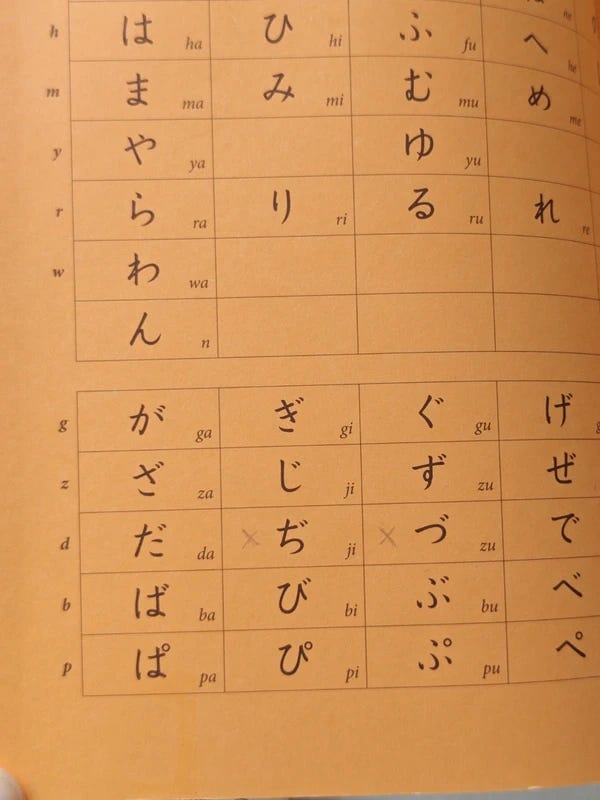 h は ha ひ hi ふ fu へ he
m ま ma み mi む mu め me
y や ya ゆ yu
r ら ra り ri る ru れ re
w わ wa
ん n
g が ga ぎ gi ぐ gu げ
z ざ za じ ji ず zu ぜ
d だ da × ぢ ji × づ zu で
b ば ba び bi ぶ bu べ
p ぱ pa ぴ pi ぷ pu ぺ